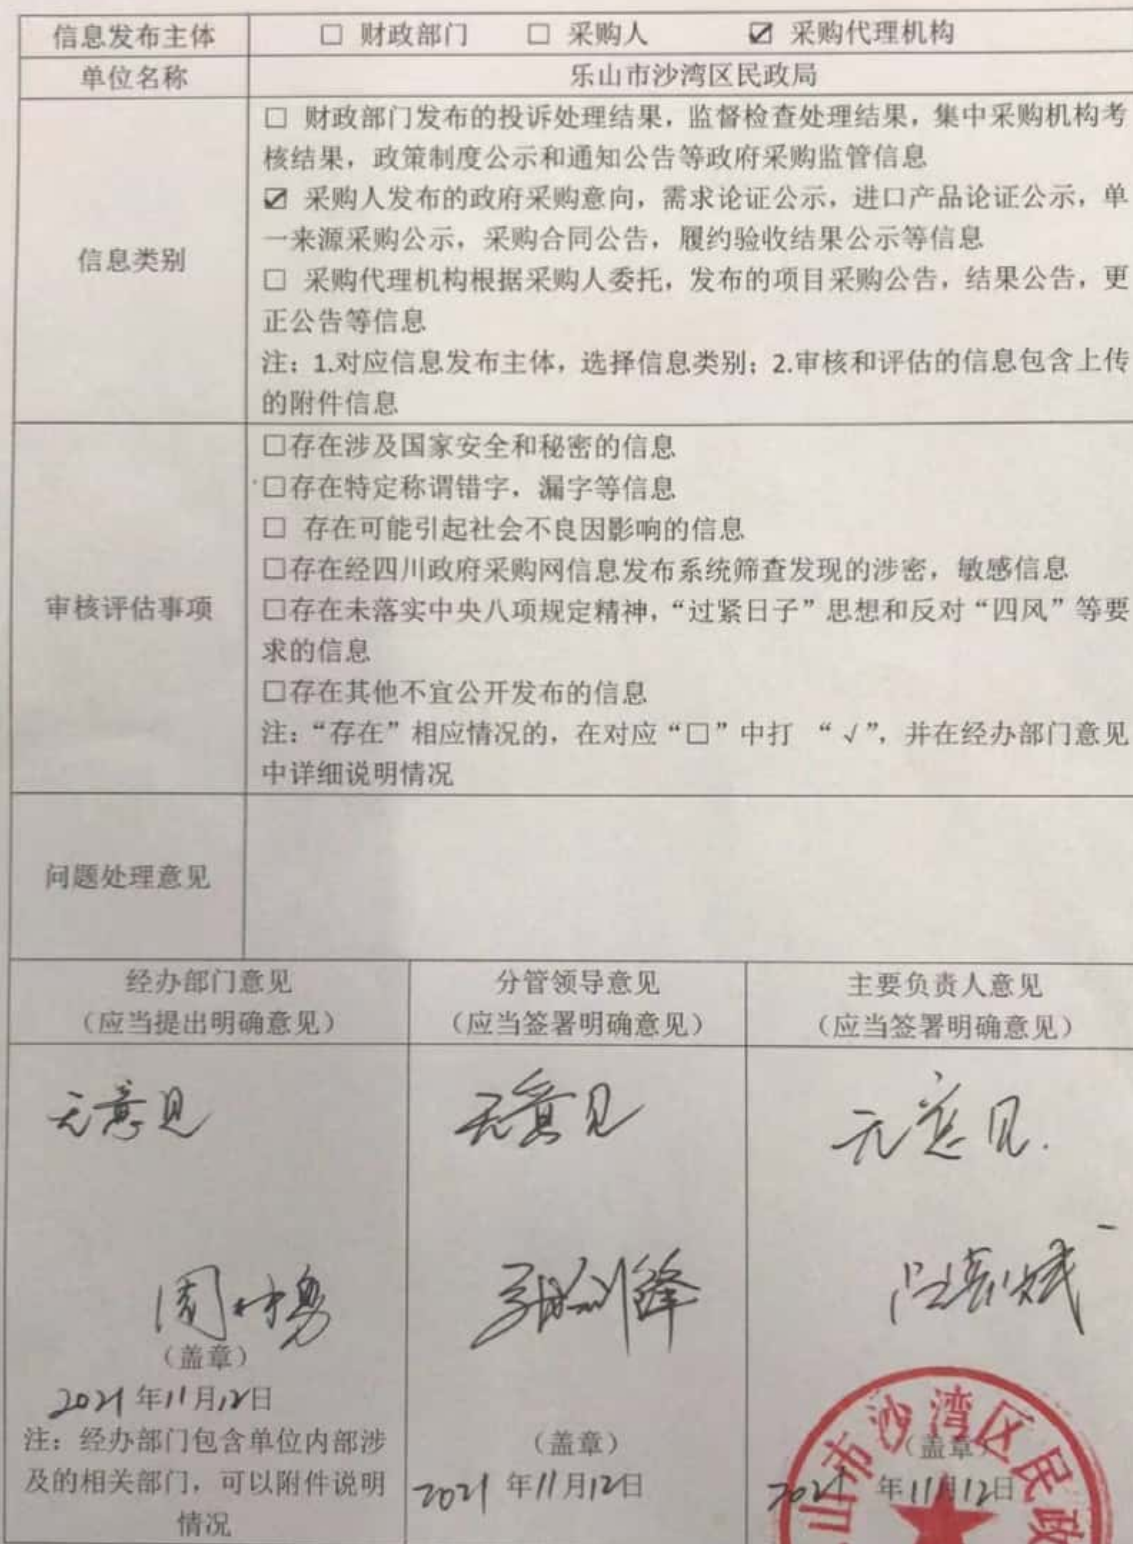 信息发布主体 □ 财政部门 □ 采购人 ☑ 采购代理机构
单位名称 乐山市沙湾区民政局
信息类别
□ 财政部门发布的投诉处理结果，监督检查处理结果，集中采购机构考
核结果，政策制度公示和通知公告等政府采购监管信息
☑ 采购人发布的政府采购意向，需求论证公示，进口产品论证公示，单
一来源采购公示，采购合同公告，履约验收结果公示等信息
□ 采购代理机构根据采购人委托，发布的项目采购公告，结果公告，更
正公告等信息
注：1.对应信息发布主体，选择信息类别；2.审核和评估的信息包含上传
的附件信息
审核评估事项
□存在涉及国家安全和秘密的信息
□存在特定称谓错字，漏字等信息
□ 存在可能引起社会不良因影响的信息
□存在经四川政府采购网信息发布系统筛查发现的涉密，敏感信息
□存在未落实中央八项规定精神，“过紧日子”思想和反对“四风”等要
求的信息
□存在其他不宜公开发布的信息
注：“存在”相应情况的，在对应“□”中打 “√”，并在经办部门意见
中详细说明情况
问题处理意见
经办部门意见
（应当提出明确意见）
分管领导意见
（应当签署明确意见）
主要负责人意见
（应当签署明确意见）
无意见
周
（盖章）
2021年11月12日
注：经办部门包含单位内部涉
及的相关部门，可以附件说明
情况
无意见
（盖章）
2021 年11月12日
无意见.
（盖章）
2021 年11月12日
山市沙湾区民政